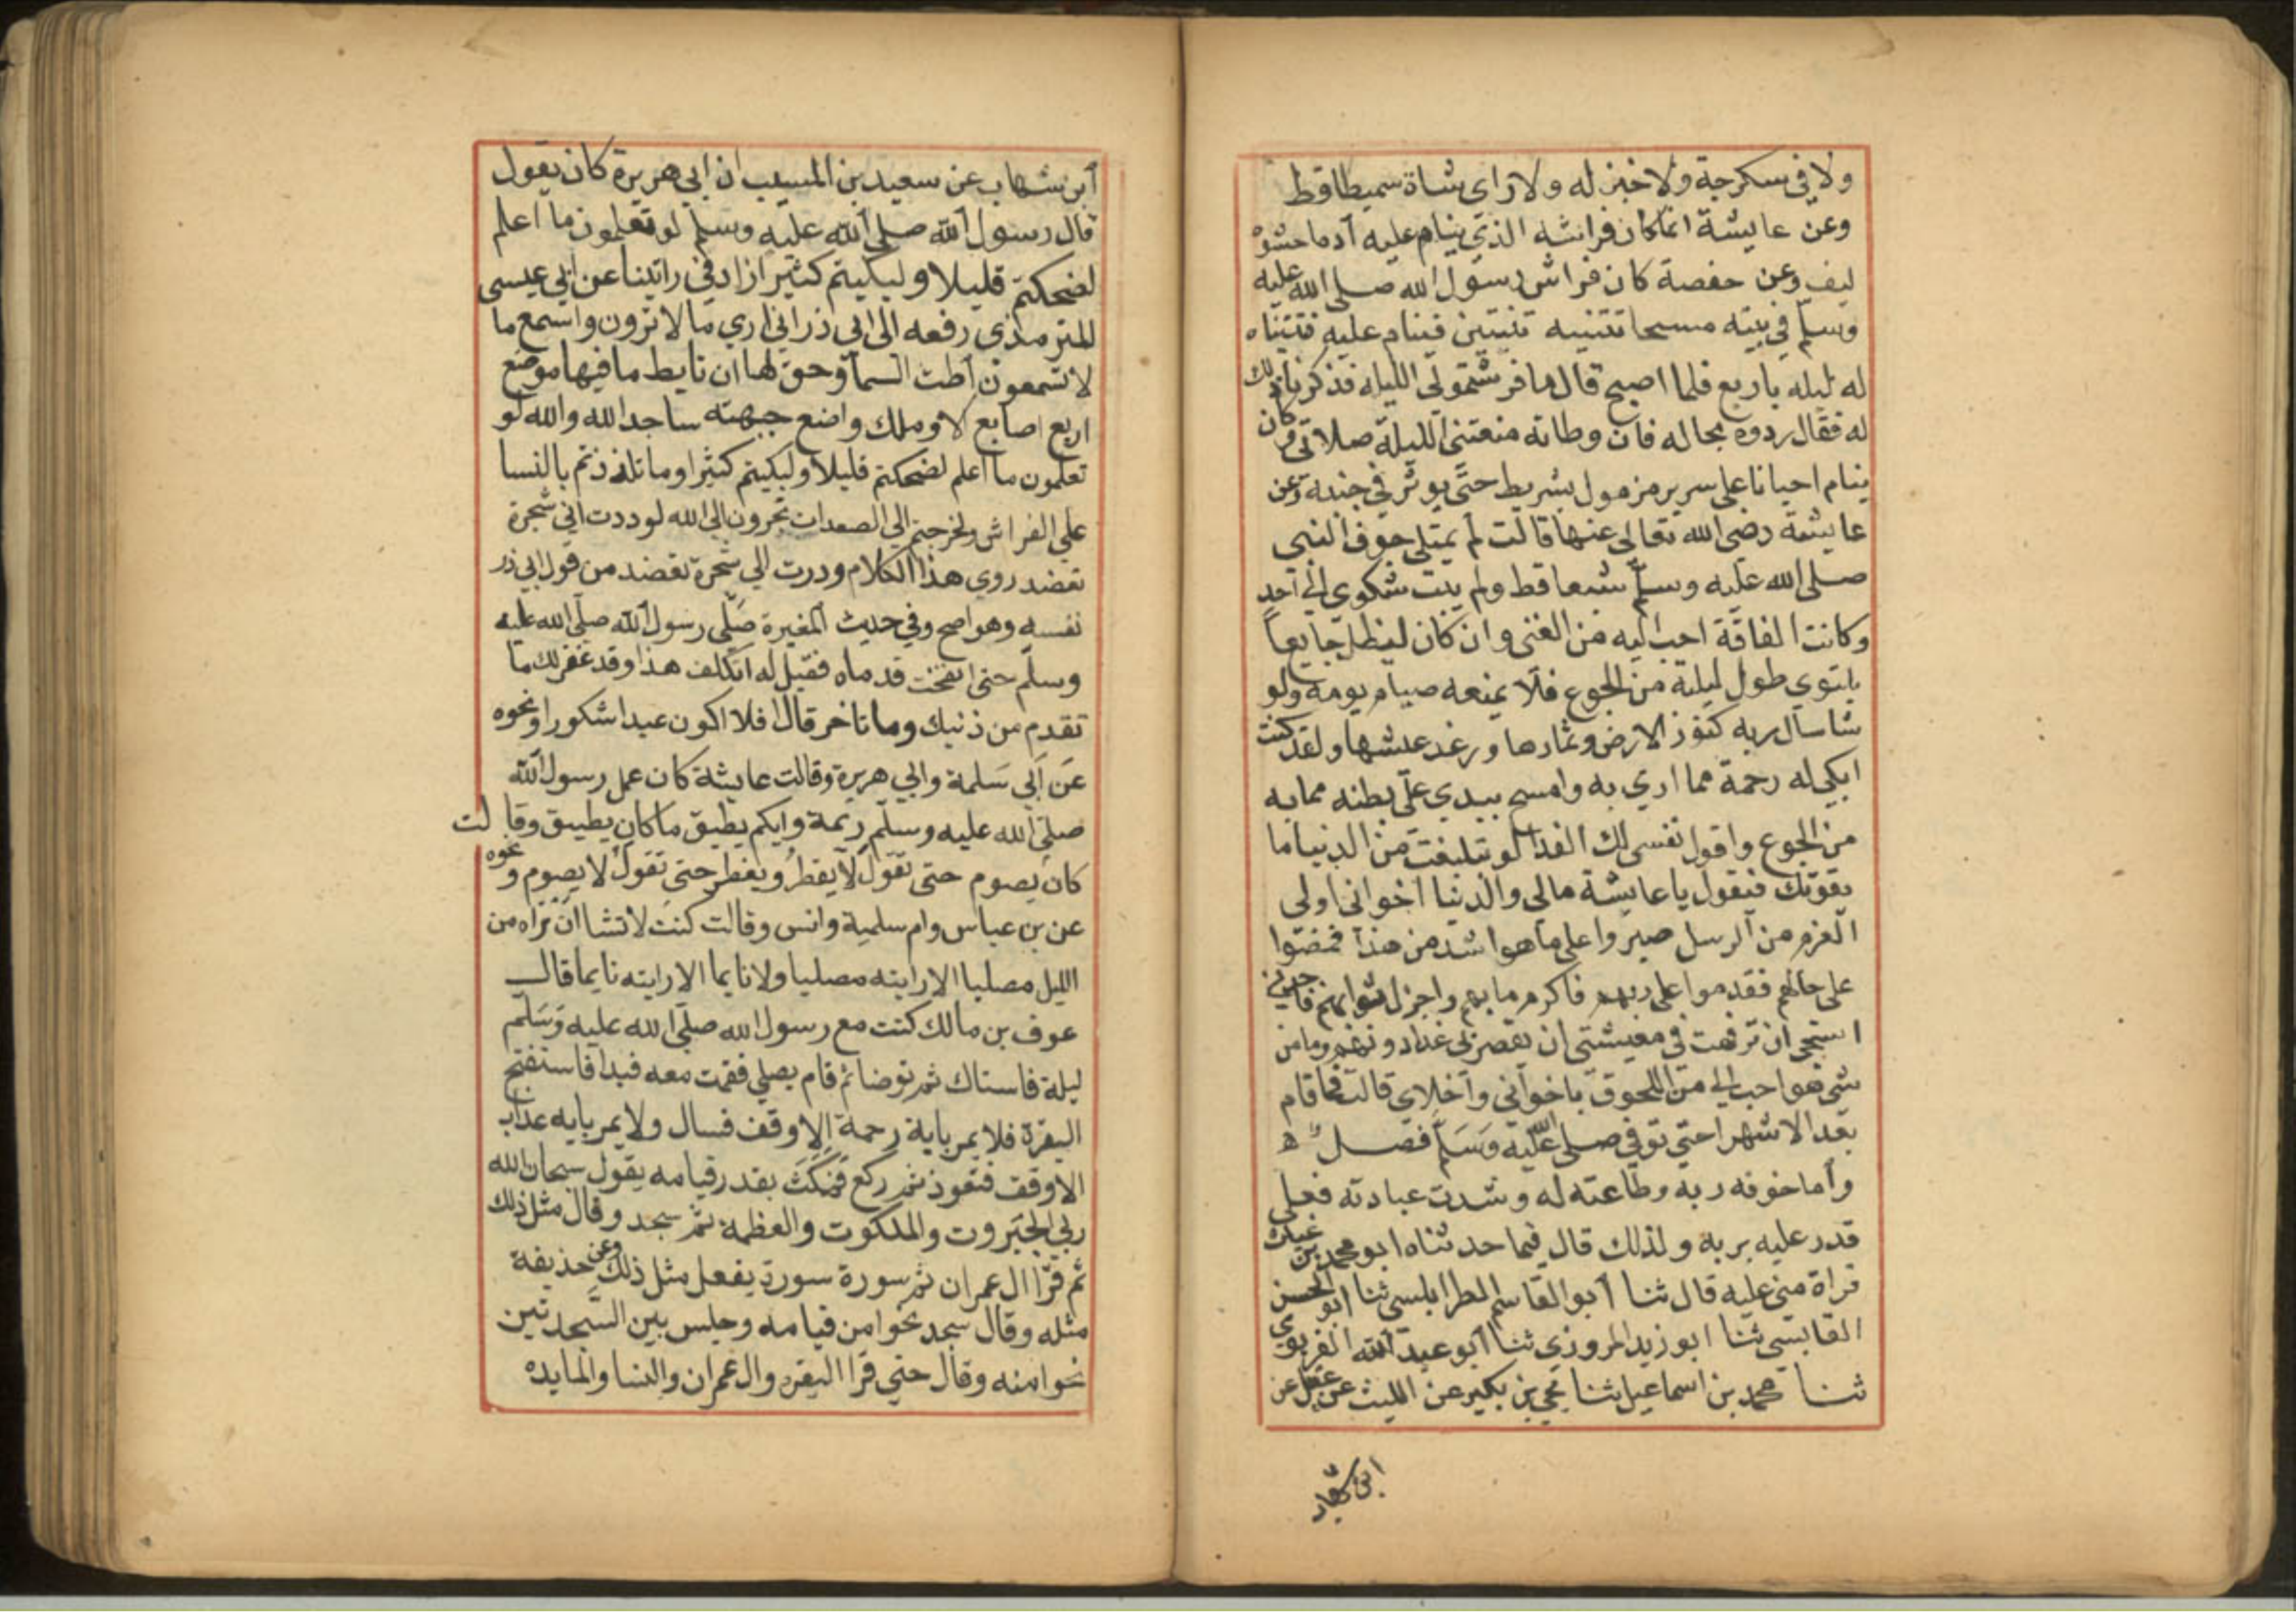 ولا في سكرجة ولا خبز له ولا راى شاة سميطا قط
وعن عايشة انما كان فراشه الذي ينام عليه أدما حشوه
ليف وعن حفصة كان فراش رسول الله صلى الله عليه
وسلم في بيته مسحا تثنيه ثنيتين فينام عليه فثنيناه
له ليلة باربع فلما اصبح قال ما فرشتمولي الليلة فذكرنا ذلك
له فقال ردوه بحاله فان وطاته منعتني الليلة صلاتي وكان
ينام احيانا على سرير مزمول بشريط حتى يوثر في جنبه وعن
عايشة رضي الله تعالى عنها قالت لم يمتلى جوف النبي
صلى الله عليه وسلم شبعا قط ولم يبث شكوى الى احد
وكانت الفاقة احب اليه من الغنى وان كان ليظل جايعا
يلتوي طول ليلته من الجوع فلا يمنعه صيام يومه ولو
شا سال ربه كنوز الارض وثمارها ورغد عيشها ولقد كنت
ابكي له رحمة مما اري به وامسح بيدي على بطنه مما به
من الجوع واقول نفسى لك الفدا لو تبلغت من الدنيا ما
يقوتك فيقول يا عايشة مالي والدنيا اخواني اولى
العزم من الرسل صبروا على ما هو اشد من هذا فمضوا
على حالهم فقدموا على ربهم فاكرم مابهم واجزل ثوابهم فاجدني
استحي ان ترفهت في معيشتي ان يقصر بي غدا دونهم وما من
شي هو احب الي من اللحوق باخواني واخلاي قالت فما قام
بعد الا شهرا حتي توفي صلى الله عليه وسلم فصل
وأما خوفه ربه وطاعته له وشدت عبادته فعلى
قدر عليه بربه ولذلك قال فيما حدثناه ابو محمد بن عتاب
قراة مني عليه قال ثنا أبو القاسم الطرابلسي ثنا ابو الحسن
القابسي ثنا ابو زيد المروزي ثنا أبو عبد الله الفربري
ثنا محمد بن اسماعيل ثنا يحي بن بكير عن الليث عن عقيل عن
ابن شهاب
ابن شهاب عن سعيد بن المسيب ان ابي هريرة كان يقول
قال رسول الله صلى الله عليه وسلم لو تعلمون ما اعلم
لضحكتم قليلا ولبكيتم كثيرا زاد في راتينا عن ابي عيسى
للترمذي رفعه الى ابي ذر اني اري ما لا ترون واسمع ما
لا تسمعون أطت السمآ وحق لها ان تايط ما فيها موضع
اربع اصابع لا وملك واضع جبهته ساجدا لله والله لو
تعلمون ما اعلم لضحكتم قليلا ولبكيتم كثيرا وما تلذذتم بالنسا
علي الفراش ولخرجتم الي الصعدات تجرون الى الله لوددت اني شجرة
تعضد روي هذا الكلام ودرت الي شجرة تعضد من قول ابي ذر
نفسه وهو اصح وفي حديث المغيرة صلى رسول الله صلى الله عليه
وسلم حتى انفخت قدماه فقيل له اتكلف هذا وقد غفر لك ما
تقدم من ذنبك وما تاخر قال افلا اكون عبدا شكورا ونحوه
عن ابي سلمة وابي هريرة وقالت عايشة كان عمل رسول الله
صلى الله عليه وسلم ديمة وايكم يطيق ما كان يطيق وقالت
كان يصوم حتى نقول لا يفطر ويفطر حتى نقول لا يصوم ونحوه
عن بن عباس وام سلمة وانس وقالت كنت لا تشا ان تراه من
الليل مصليا الا رايته مصليا ولا نايما الا رايته نايما قال
عوف بن مالك كنت مع رسول الله صلى الله عليه وسلم
ليلة فاستاك ثم توضا ثم قام يصلي فقمت معه فبدا فاستفتح
البقرة فلا يمر باية رحمة الا وقف فسال ولا يمر باية عذاب
الا وقف فتعوذ ثم ركع فمكث بقدر قيامه يقول سبحان الله
ربي الجبروت والملكوت والعظمة ثم سجد وقال مثل ذلك
ثم قرا ال عمران ثم سورة سورة يفعل مثل ذلك وعن حذيفة
مثله وقال سجد نحوا من قيامه وجلس بين السجدتين
نحوا منه وقال حتي قرا البقره وال عمران والنسا والمايده